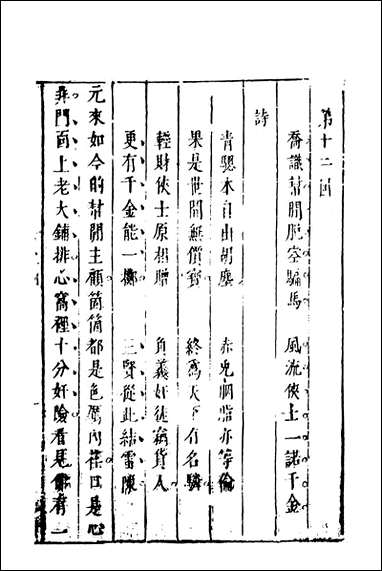 第十二回
喬識幇閒脫空騙馬　風流俠士一諾千金
詩
青驄本自由胡塵　赤兔胭脂亦等倫
果是世間無價寶　終爲天下有名驎
輕財俠士原相贈　負義奸徒竊貨人
更有千金能一擲　三賢從此結雷陳
元來如今的幇閒主顧箇箇都是色厲內荏口是心
非門面上老大鋪排心窩裡十分奸險看見有一